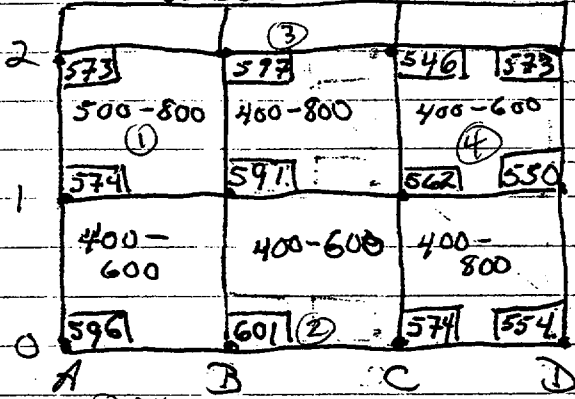 ③
2
573 597 546 573
500-800 400-800 400-600
① ④
574 591 562 550
1
400-600 400-600 400-800
596 601 ② 574 554
0
A B C D